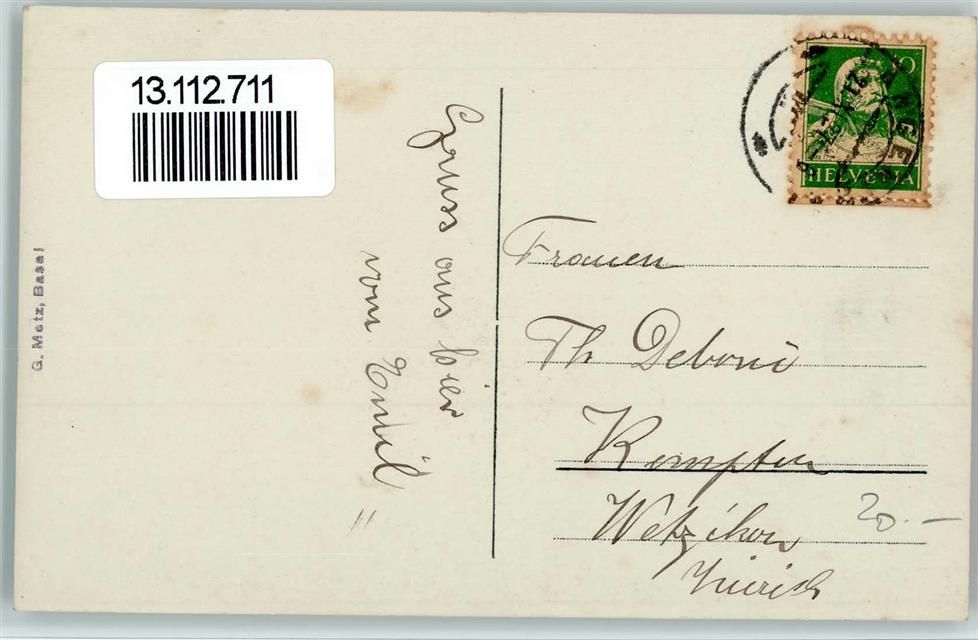 13.112.711
G. Metz, Basel
Gruss aus hier
vom Emil
10
HELVETIA
Frauen
Th Deboni
Kempten
Wetzikon
Zürich
20.—